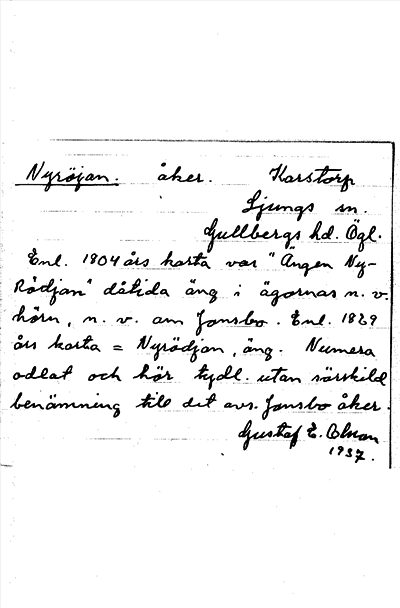 Nyröjan. åker. Karstorp
Ljungs sn.
Gullbergs hd. Ögl.
Enl. 1804 års karta var "Ängen Ny-
Rödjan" dåtida äng i ägornas n. v.
hörn, n. v. om Jonsbo. Enl. 1869
års karta = Nyrödjan, äng. Numera
odlat och hör tydl. utan särskild
benämning till det avs. Jonsbo åker.
Gustaf E. Olsson
1937.